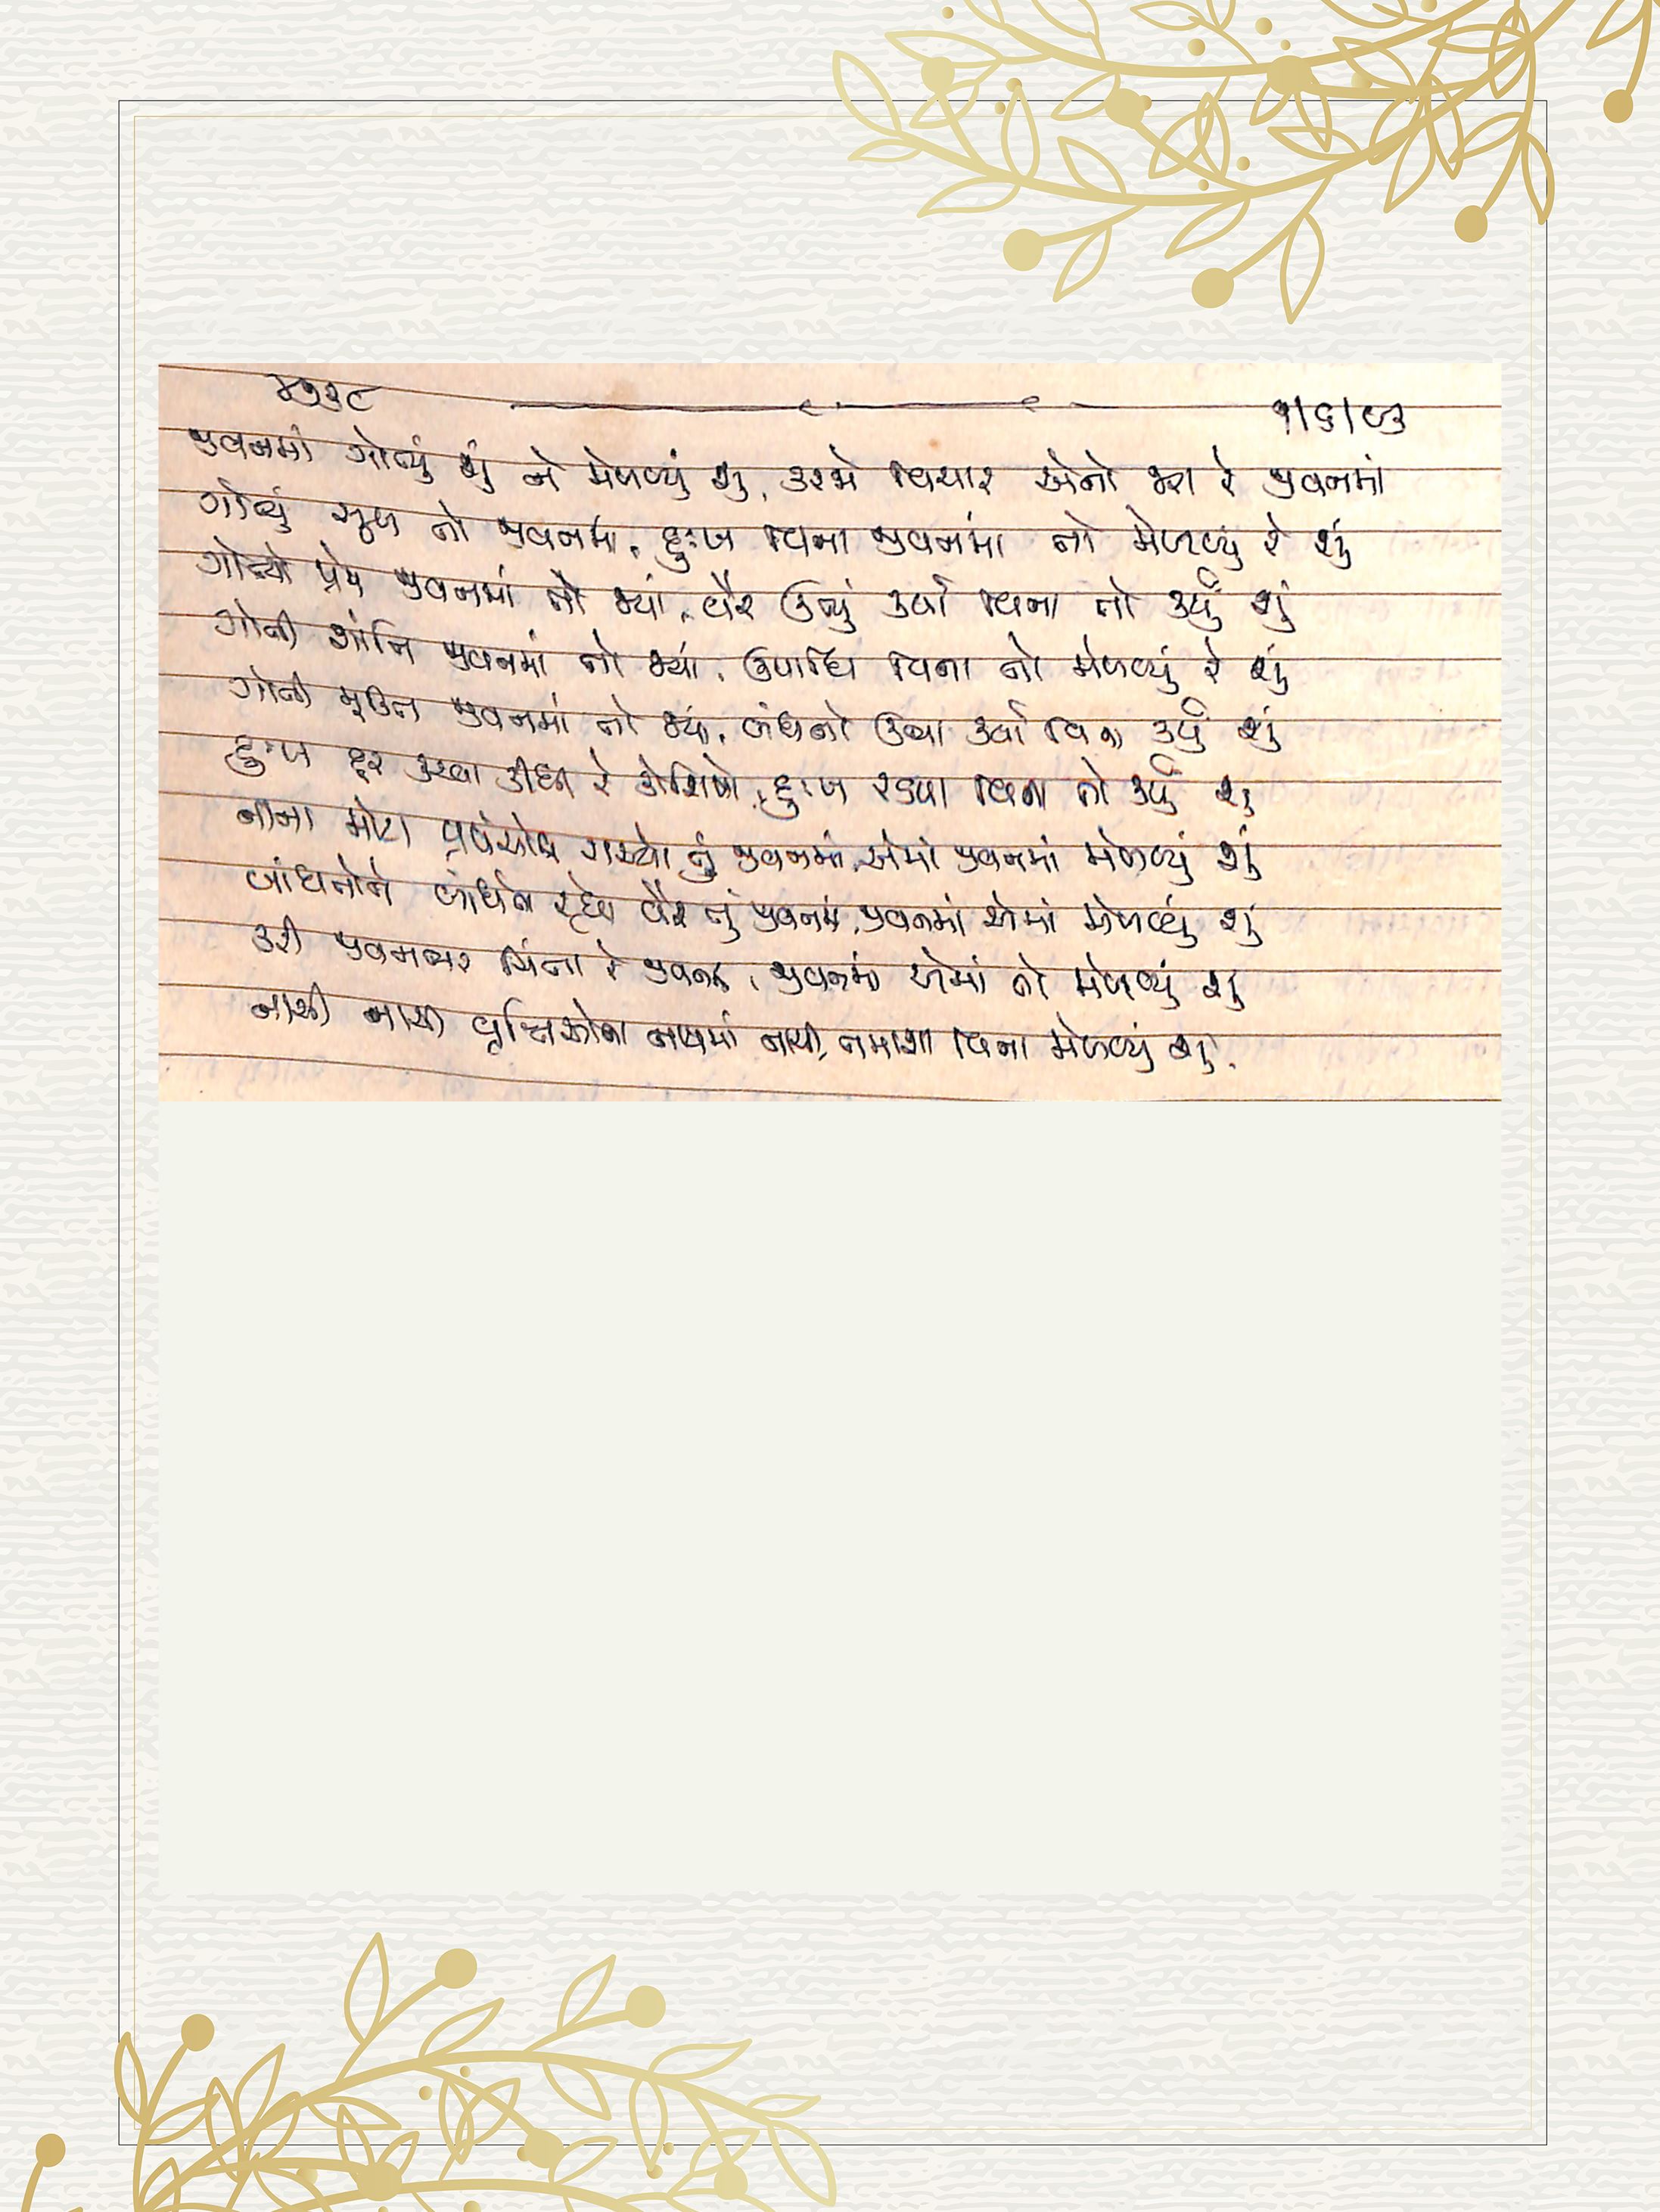 ૪૭૨૮ ૧/૬/૯૩
જીવનમાં ગોત્યું શું ને મેળવ્યું શું, કરજે વિચાર એનો જરા રે જીવનમાં
ગોત્યું સુખ તો જીવનમાં, દુઃખ વિના જીવનમાં તો મેળવ્યું રે શું
ગોત્યો પ્રેમ જીવનમાં તો જ્યાં, વૈર ઊભું કર્યા વિના તો કર્યું શું
ગોતી શાંતિ જીવનમાં તો જ્યાં, ઉપાધિ વિના તો મેળવ્યું રે શું
ગોતી મૂક્તિ જીવનમાં તો જ્યાં, બંધનો ઊભા કર્યા વિના કર્યું શું
દુઃખ દૂર કરવા કીધી રે કોશિષો, દુઃખ રડયા વિના તો કર્યું શું
નાના મોટા મોટા ગણ્યો તું જીવનમાં, એમાં જીવનમાં મેળવ્યું શું
બાંધતોને બાંધતો રહ્યો વૈર તું જીવનમાં, જીવનમાં એમાં મેળવ્યું શું
કરી જીવનભર ચિંતા રે જીવનમાં, જીવનમાં એમાં તો મેળવ્યું શું
નાચી નાચી વૃત્તિઓના નાચમાં નાચી, તમાશા વિના મેળવ્યું શું.